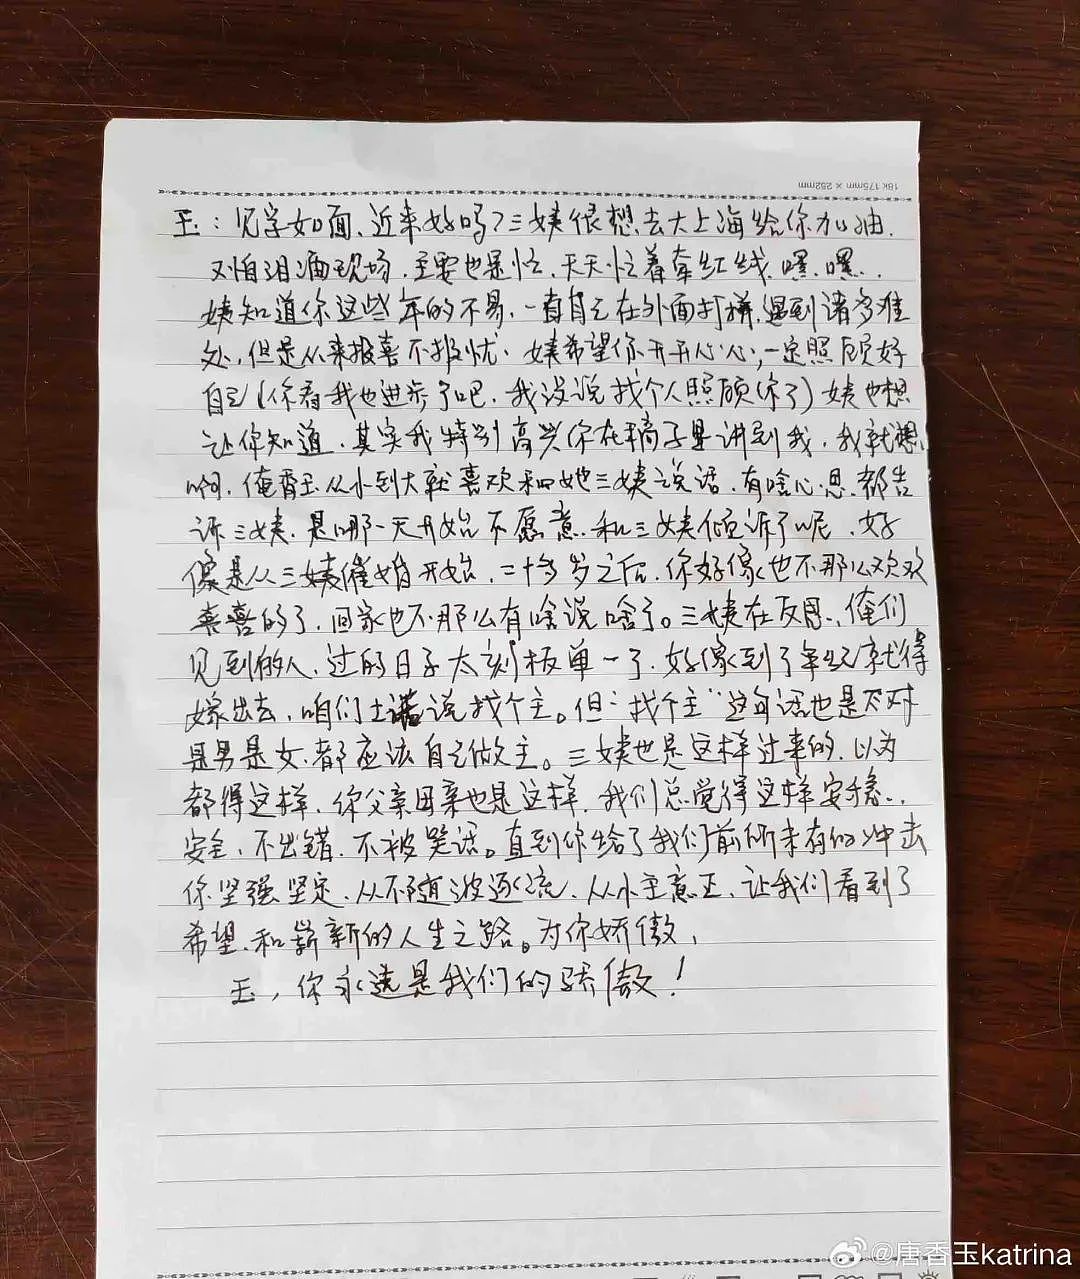 18k 175mm × 252mm
玉：见字如面、近来好吗？三姨很想去大上海给你加油.
又怕泪洒现场.主要也是忙、天天忙着牵红线.嘿.嘿..
姨知道你这些年的不易.一直自己在外面打拼.遇到诸多难
处.但是从来报喜不报忧.姨希望你开开心心.一定照顾好
自己(你看我也进步了吧.我没说找个人照顾你了)姨也想
让你知道.其实我特别高兴你在稿子里讲到我.我就想.
啊.俺香玉从小到大就喜欢和她三姨说话.有啥心思.都告
诉三姨.是哪一天开始不愿意.和三姨倾诉了呢.好
像是从三姨催婚开始.二十多岁之后.你好像也不那么欢欢
喜喜的了.回家也不那么有啥说啥了。三姨在反思.俺们
见到的人.过的日子太刻板单一了.好像到了年纪就得
嫁出去.咱们土话说找个主。但"找个主"这句话也是不对
是男是女.都应该自己做主。三姨也是这样过来的.以为
都得这样.你父亲母亲也是这样.我们总觉得这样安稳..
安全.不出错.不被笑话。直到你给了我们前所未有的冲击
你坚强坚定.从不随波逐流.从小主意正.让我们看到了
希望.和崭新的人生之路。为你娇傲,
玉,你永远是我们的骄傲!
@唐香玉katrina